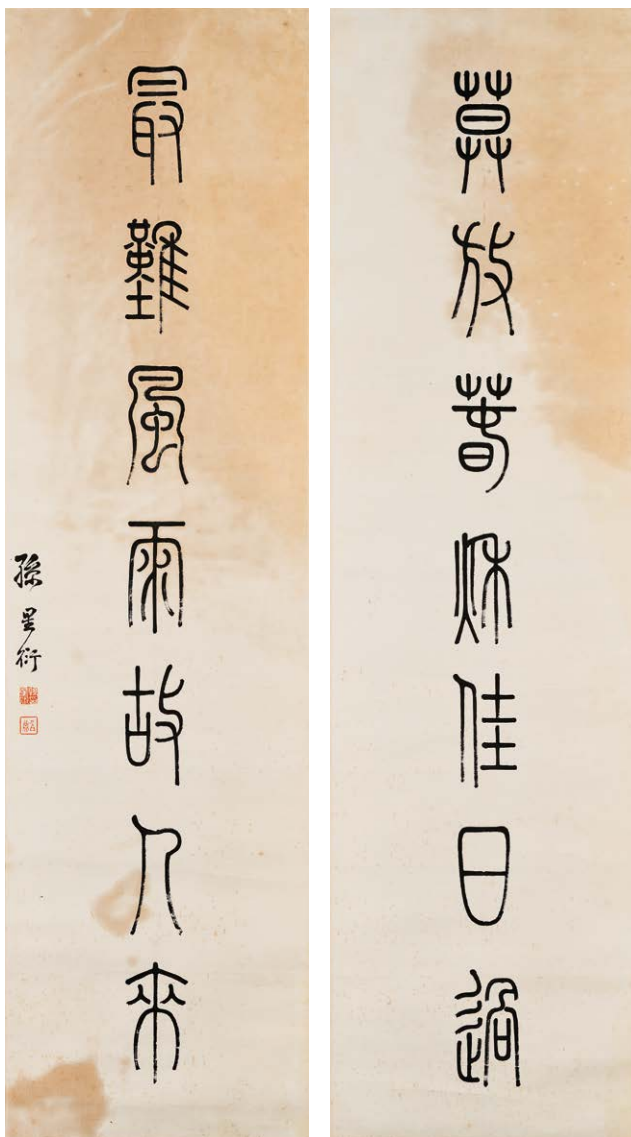 莫放萅秌佳日過
最難風雨故人來
孫星衍